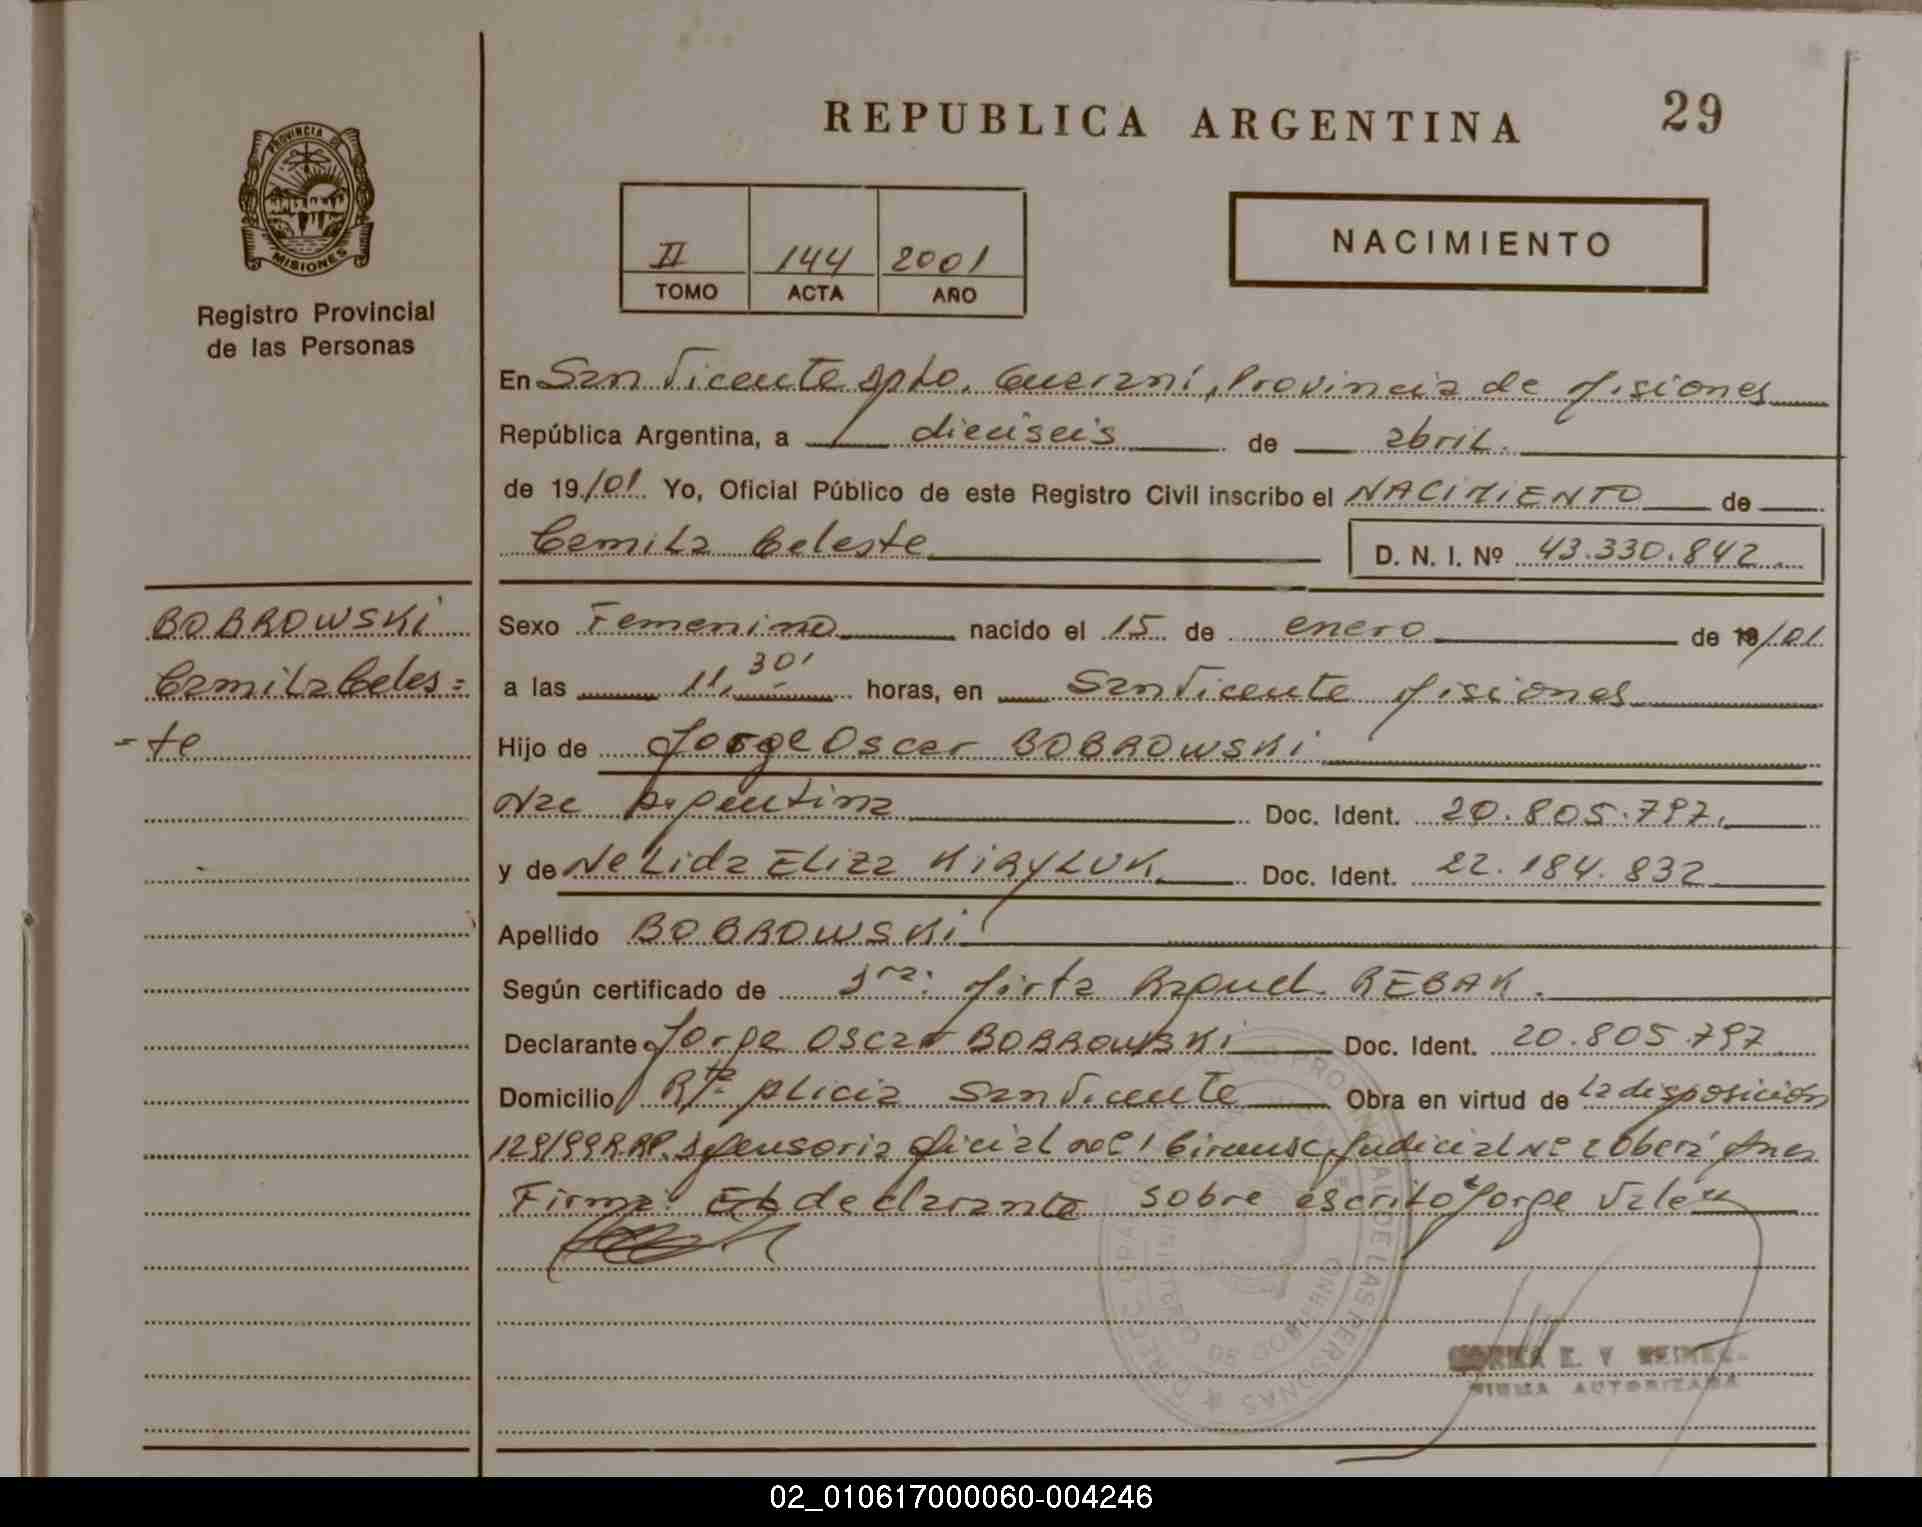 REPUBLICA ARGENTINA
29
PROVINCIA DE
MISIONES
Registro Provincial
de las Personas
II 144 2001
TOMO ACTA AÑO
NACIMIENTO
En San Vicente Dpto. Guaraní, Provincia de Misiones
República Argentina, a dieciseis de abril.
de 19/01. Yo, Oficial Público de este Registro Civil inscribo el NACIMIENTO de
Camila Celeste
D. N. I. Nº 43.330.842
BOBROWSKi
Camila Celes=
-te
Sexo Femenino nacido el 15 de enero de 19/01
a las 11,30' horas, en San Vicente Misiones
Hijo de Jorge Oscar BOBROWSKi
Nac Argentina Doc. Ident. 20.805.797.
y de NeLida ELiza KiRYLUK Doc. Ident. 22.184.832
Apellido BOBROWSKi
Según certificado de Sra: Mirta Raquel REBAK.
Declarante Jorge Oscar BOBROWSKi Doc. Ident. 20.805.797
Domicilio Rta. Alicia San Vicente Obra en virtud de La disposición
129/99 R.P. Defensoria Oficial Judicial Oberá
Firma: declarante sobre escrito "Jorge Vale"
FIRMA AUTORIZADA
02_010617000060-004246